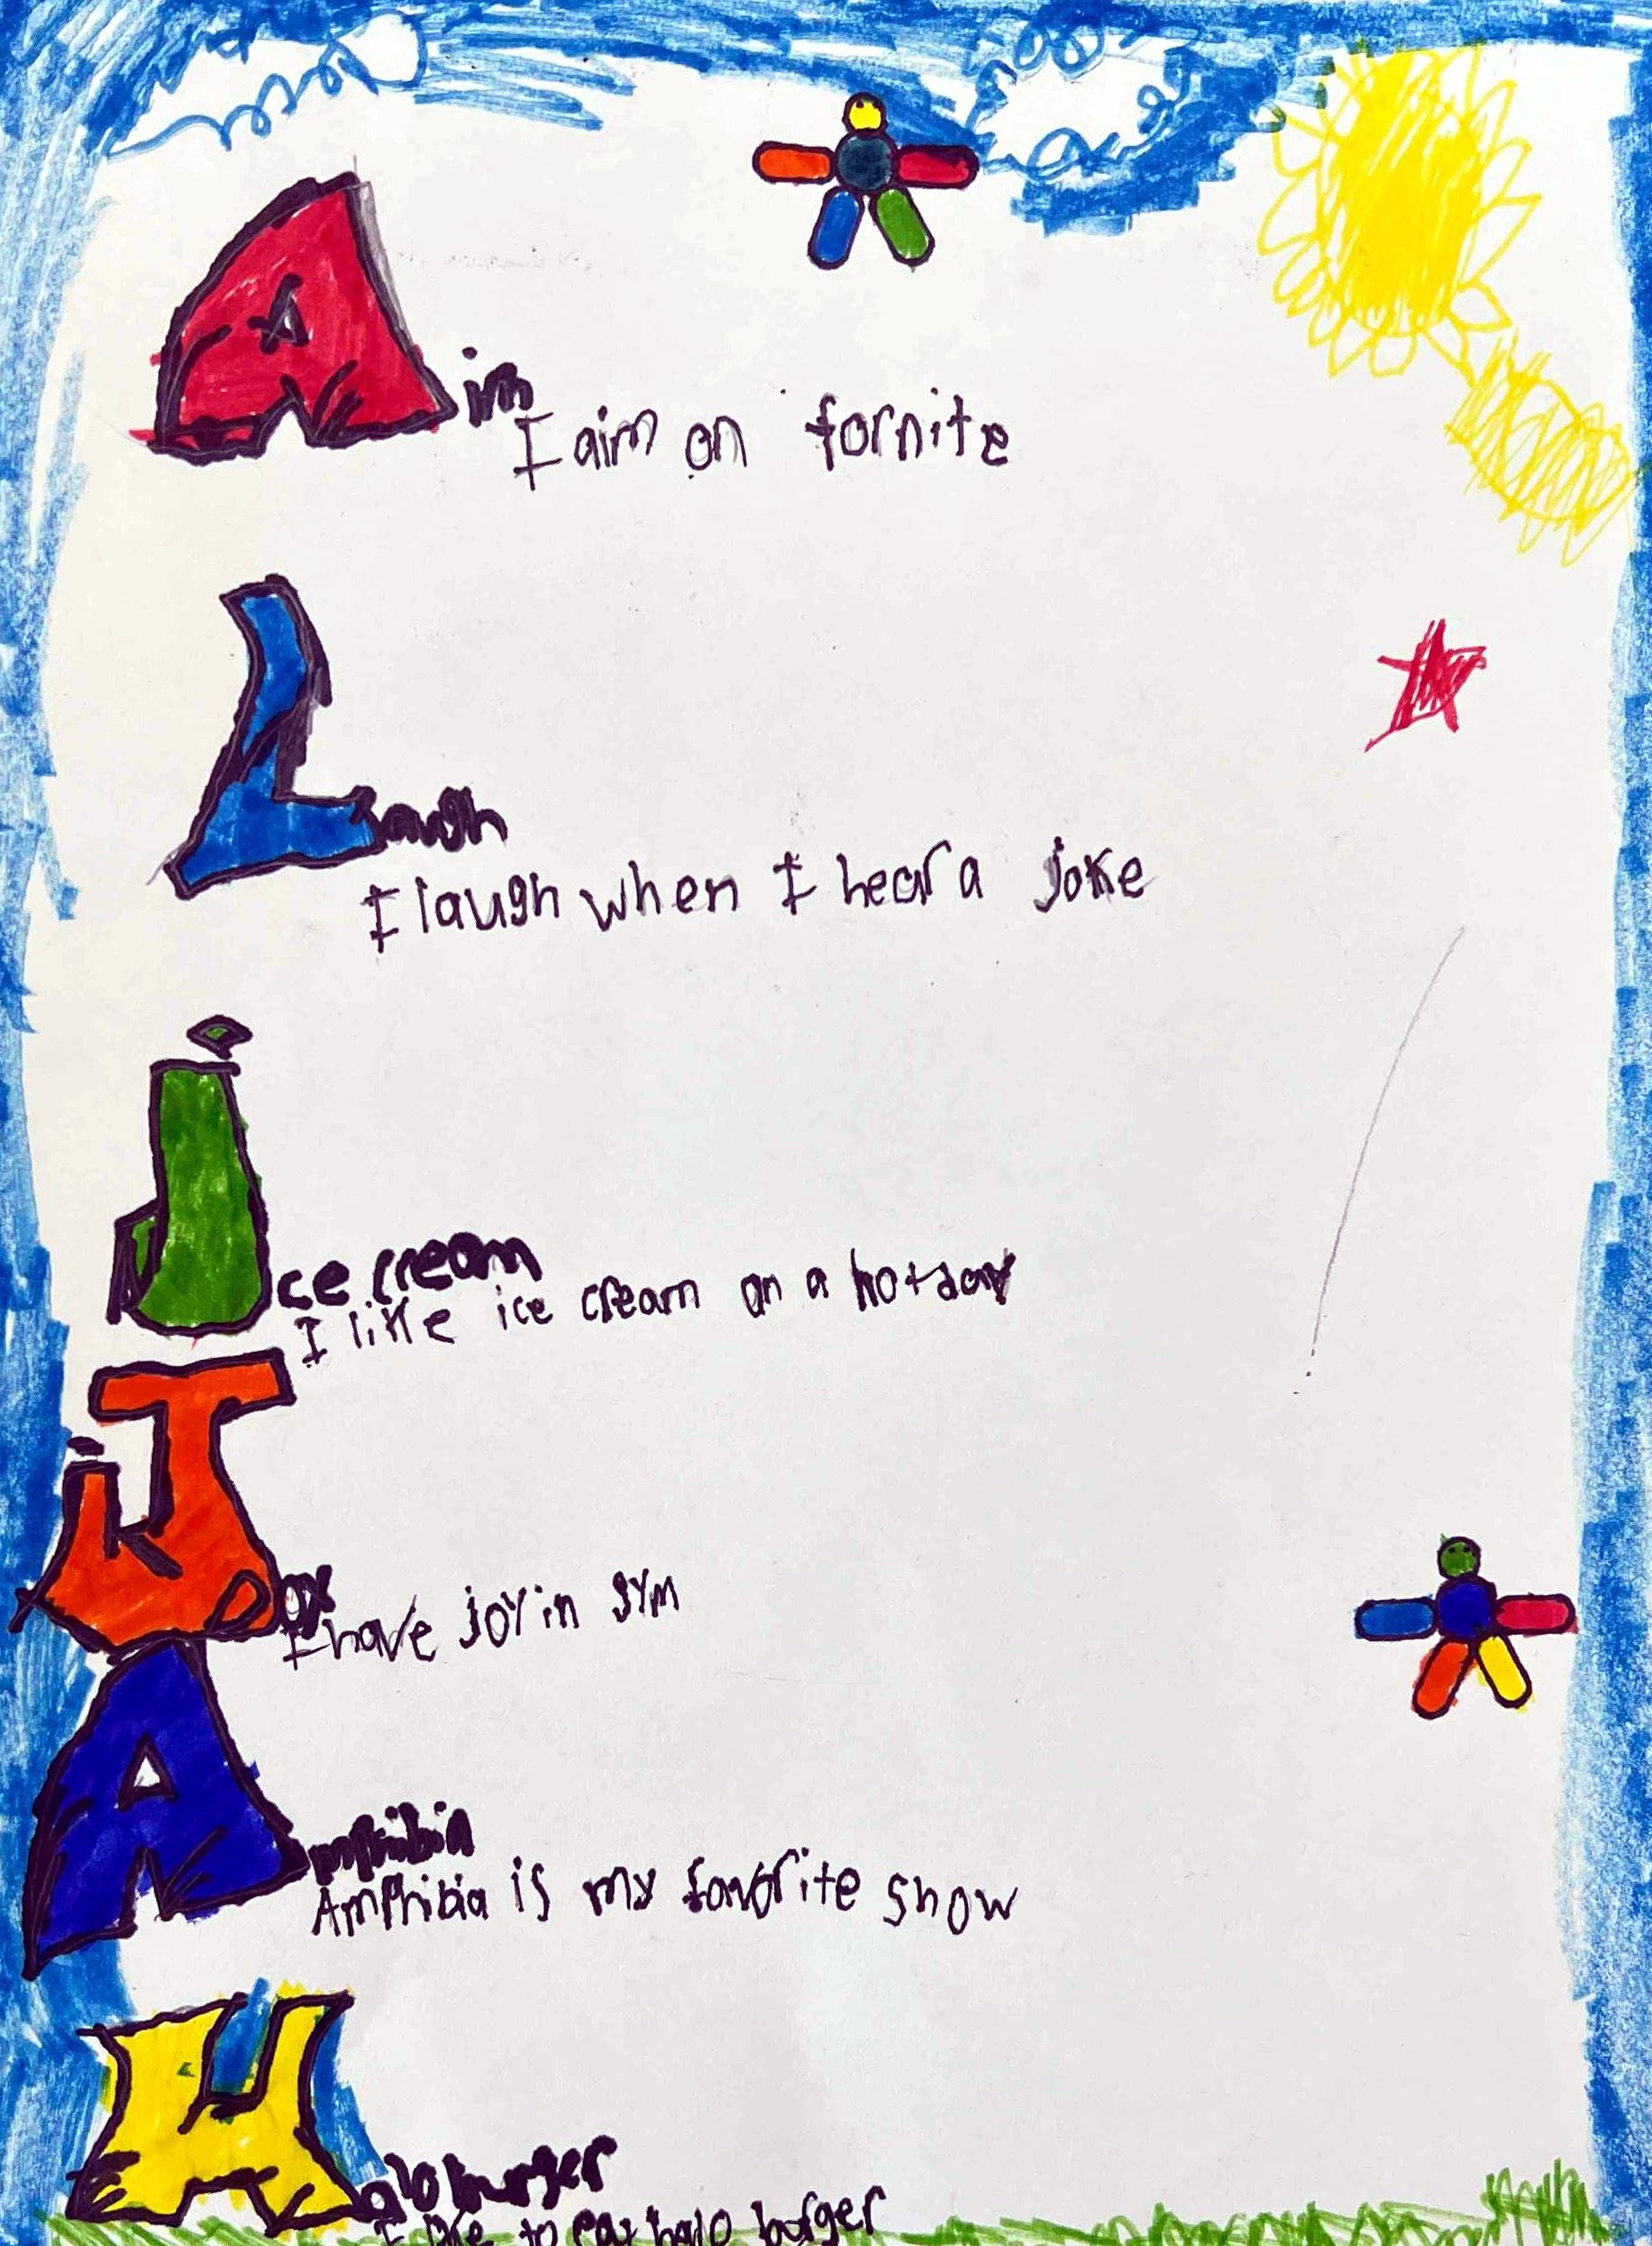 Aim
I aim on fornite
Laugh
I laugh when I hear a joke
ice cream
I like ice cream on a hot day
Joy
I have joy in gym
Amphibia
Amphibia is my favorite show
Halo burger
I like to eat halo burger